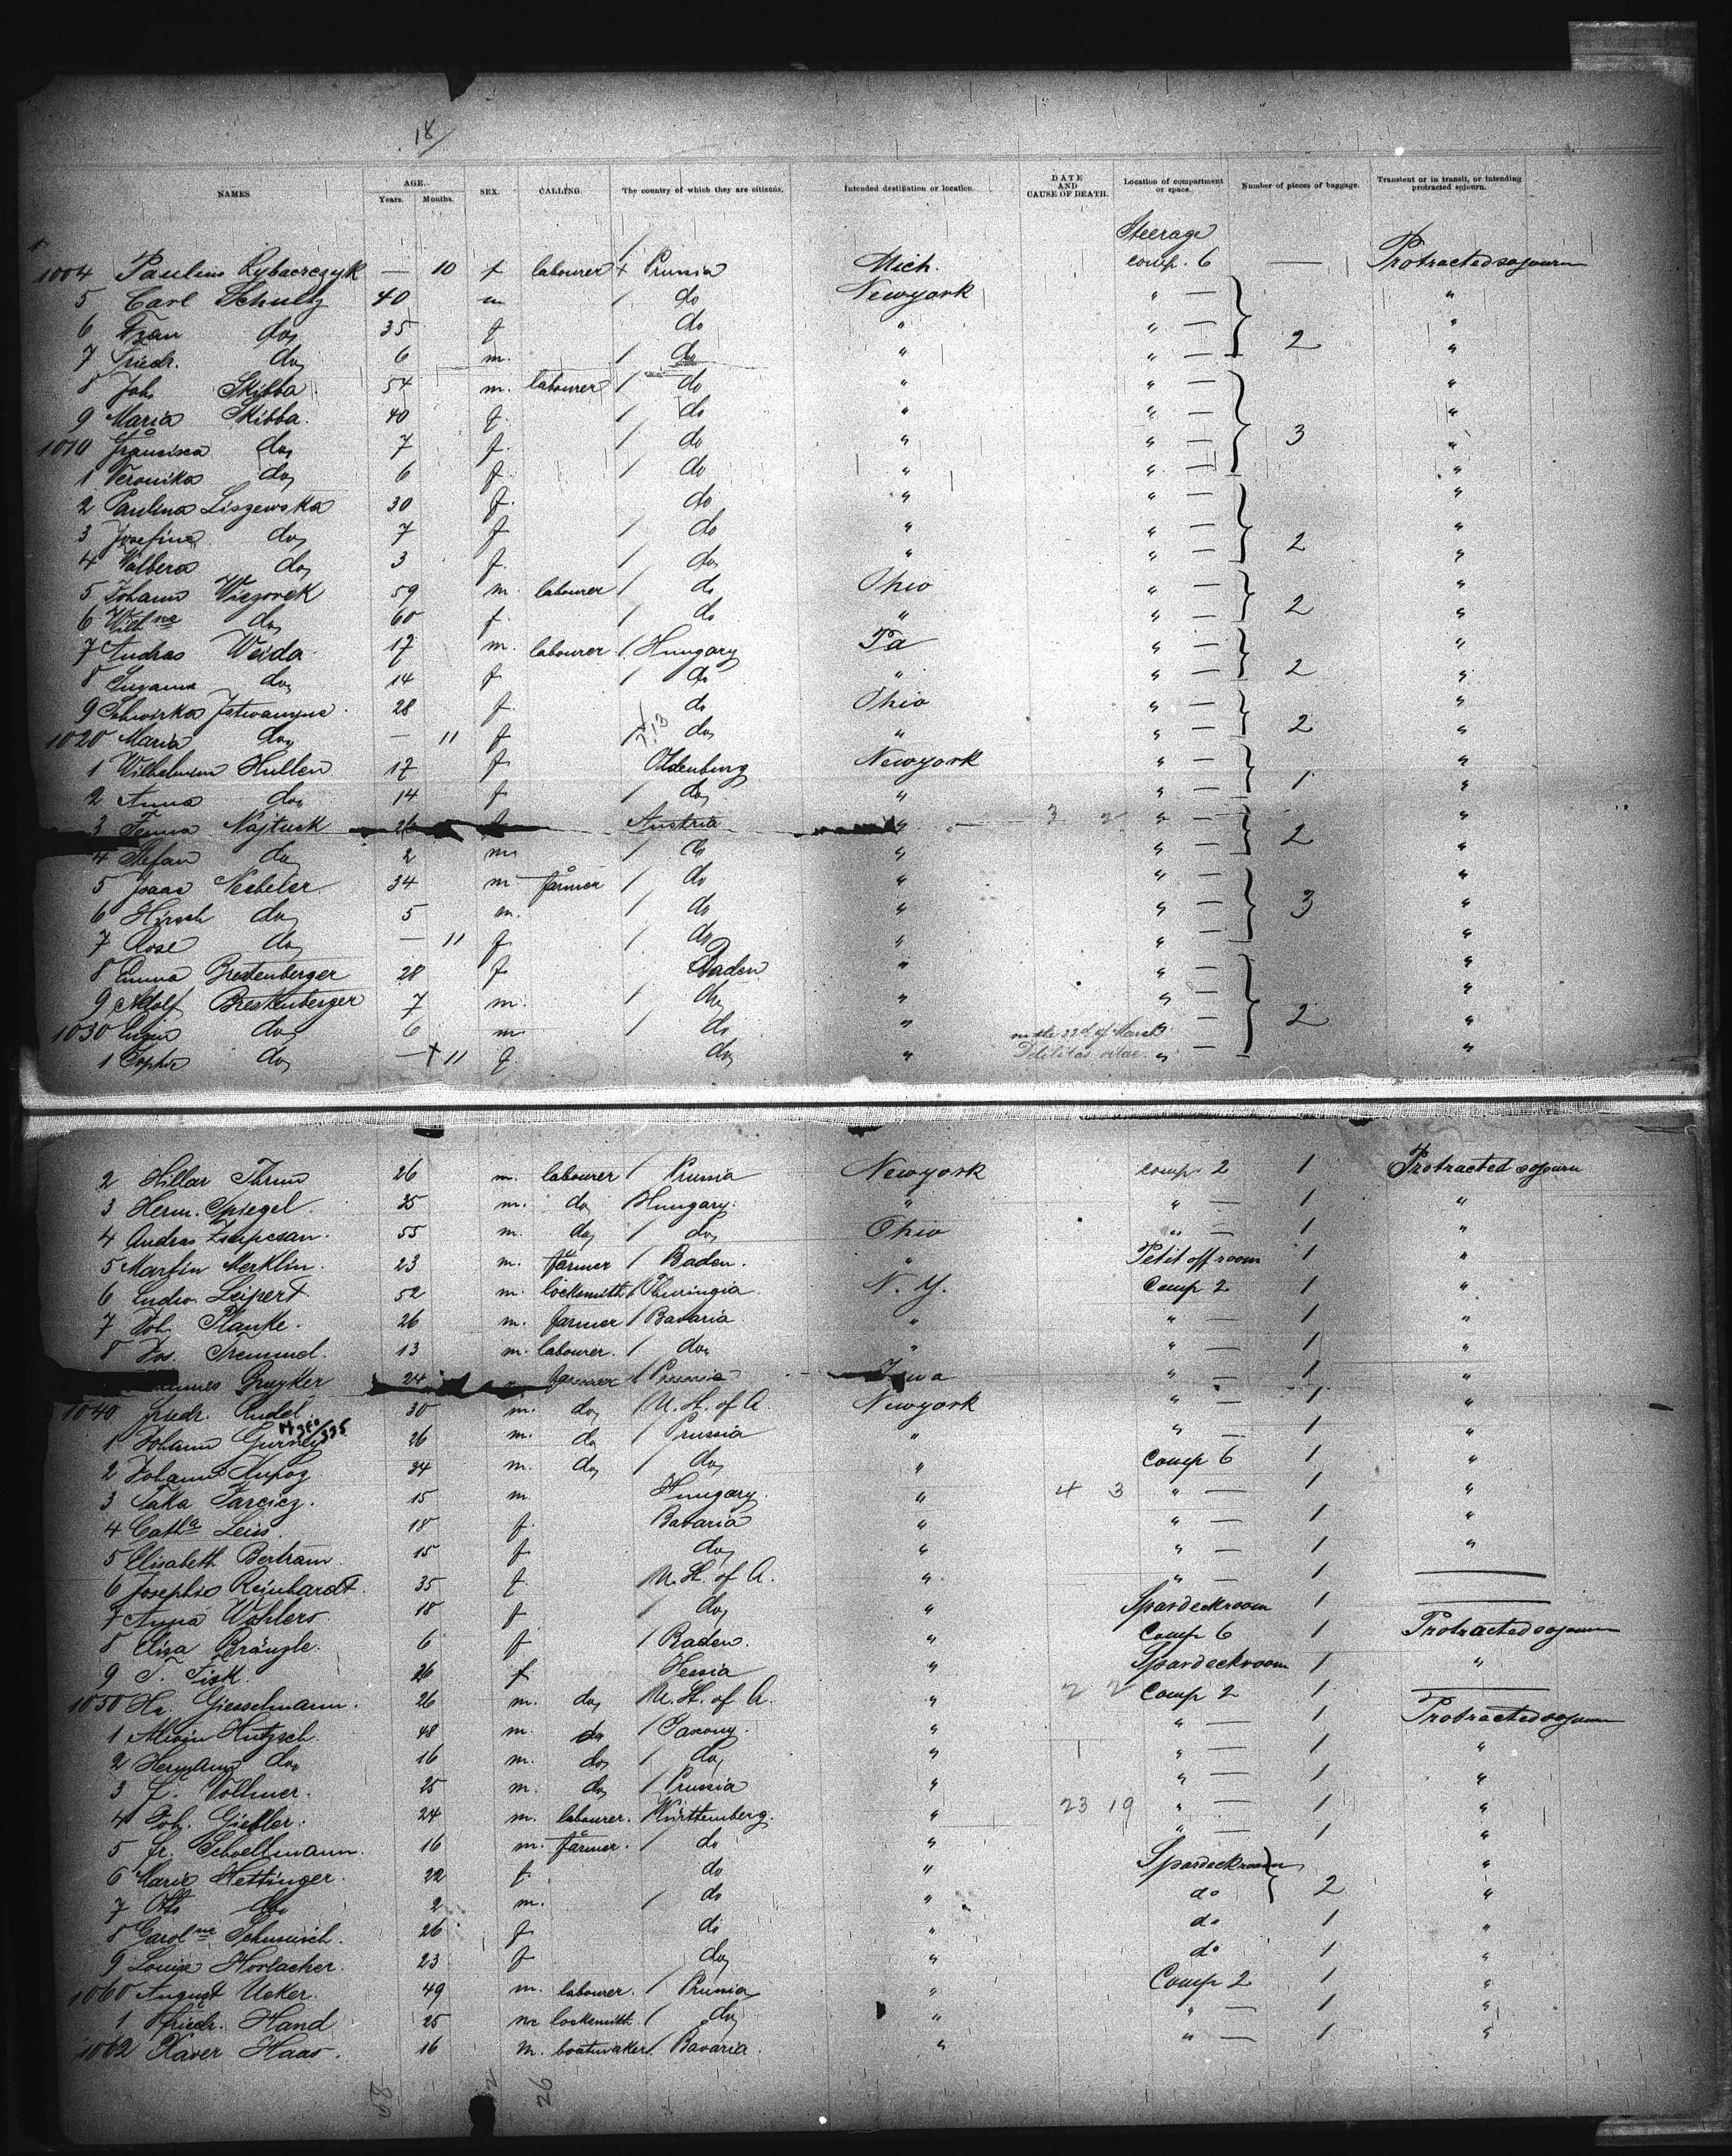 18
NAMES AGE. Years. Months. SEX. CALLING. The country of which they are citizens. Intended destination or location. DATE AND CAUSE OF DEATH. Location of compartment or space. Number of pieces of baggage. Transient or in transit, or intending protracted sojourn.
Steerage
1004 — 10 f labourer + Prussia Mich. comp. 6 — Protracted sojourn
5 Carl Schultz 40 m / do Newyork " — "
6 Frau do 35 f do " " — 2 "
7 Friedr. do 6 m. / do " " — "
8 Joh. Skibba 54 m. labourer / do " " — "
9 Maria Skibba. 40 f. / do " " — "
1010 Francisca do 7 f. / do " " — 3 "
1 Veronika do 6 f. / do " " — "
2 Paulina Liszewska 30 f. do " " — "
3 Josefine do 7 f / do " " — "
4 do 3 f. / do " " — 2 "
5 Johann 59 m. labourer / do Ohio " — "
6 Wilhne do 60 f. / do " " — 2 "
7 Andras Weida 17 m. labourer / Hungary Pa " — "
8 do 14 f / do " " — 2 "
9 28 f. do Ohio " — "
1020 Maria do — 11 f / do " " — 2 "
1 Hullen 17 f. Oldenburg Newyork " — "
2 Anna do 14 f / do " " — 1 "
3 26 Austria " 3 2 " — "
4 Stefan do 2 m / do " " — 2 "
5 Isaac 34 m. farmer / do " " — "
6 Hirsch do 5 m. / do " " — 3 "
7 Rose do — 11 f / do " " — "
8 Emma Brestenberger 28 f Baden " " — "
9 Adolf Brestenberger 7 m. / do " " — "
1030 do 6 m / do " on the 22d of March " — 2 "
1 Sophie do — + 11 f. do " Debilitas vitae. " — "
2 Hillar 26 m. labourer / Prussia Newyork comp. 2 1 Protracted sojourn
3 Herm. Spiegel 25 m. do / Hungary. " " — 1 "
4 Andras 55 m. do / do Ohio " — 1 "
5 Martin Merklin. 23 m. farmer / Baden. " Petit off room 1 "
6 Ludw. Leipert 52 m. locksmith / Thuringia. N. Y. Comp 2 1 "
7 Joh. Planke. 26 m. farmer / Bavaria " " — 1 "
8 Jos. 13 m. labourer. / do " " — 1 "
24 farmer / Prussia Iowa " — 1 "
1040 Friedr. Rudel. 30 m. do / U. St. of A Newyork " — 1 "
1 Johann 26 m. do / Prussia " " — 1 "
2 Johann 34 m. do / do " Comp 6 1 "
3 15 m. Hungary. " 4 3 " — 1 "
4 Catha Leiss. 18 f. Bavaria " " — 1 "
5 Elisabeth Bertram 15 f do " " — 1 "
6 Josephie Reinhardt. 35 f U. St. of A. " " — 1 —
7 Anna Wohlers. 18 f / do " Spardeckroom 1 —
8 Elisa Bränzle. 6 f / Baden. " Comp 6 1 Protracted sojourn
9 T. Fisk. 26 f. Hessia " Spardeckroom 1 "
1050 Hr. Giesselmann. 26 m. do / U. St. of A. " 2 2 Comp 2 1 —
1 Alwin 48 m. do / Saxony. " " — 1 Protracted sojourn
2 Hermann do 16 m. do / do " " — 1 "
3 Vollmer. 25 m. do / Prussia " " — 1 "
4 Joh. Giebler. 24 m. labourer. / Württemberg. " 23 19 " — 1 "
5 Fr. Schoellmann. 16 m. farmer. / do " " — 1 "
6 Marie Hettinger. 22 f. do " Spardeckroom "
7 Otto do 2 m. / do " do 2 "
8 Carolne 26 f do " do 1 "
9 Louise Horlacher. 23 f do " do 1 "
1060 August Ucker. 49 m. labourer. / Prussia " Comp 2 1 "
1 Friedr. Hand 25 m locksmith / do " " — 1 "
1062 Xaver Haas. 16 m. / Bavaria. " " — 1 "
26